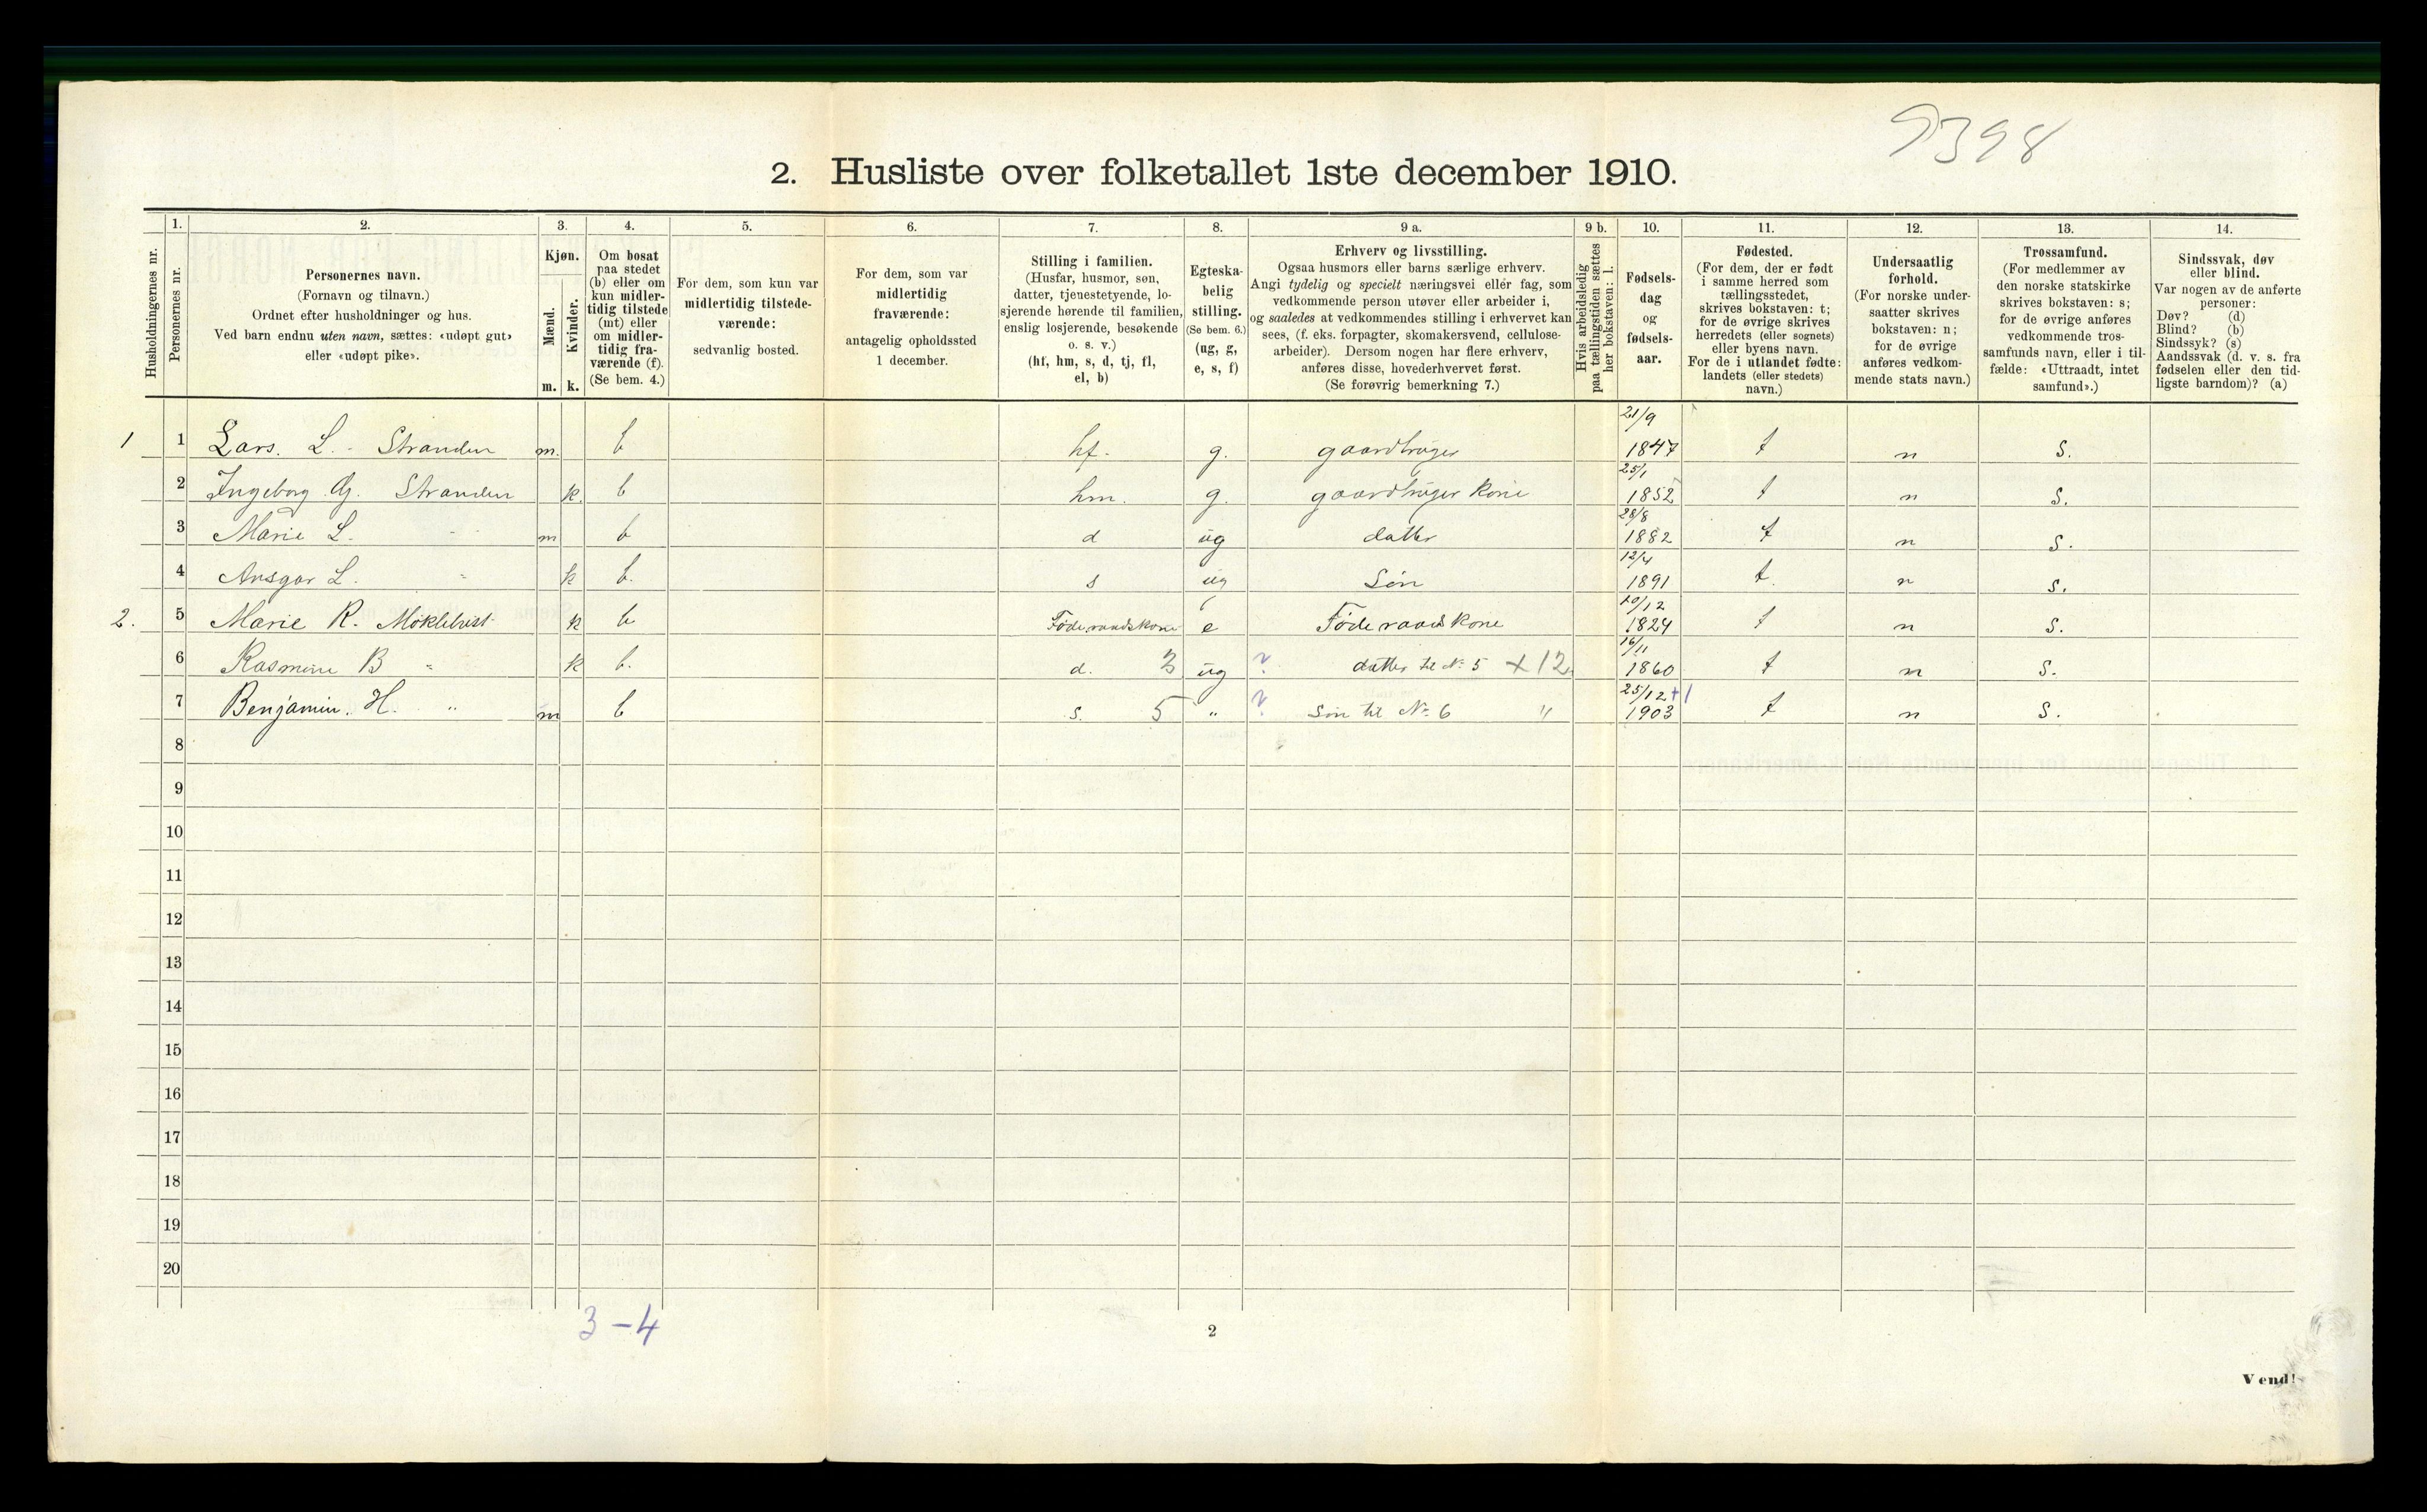 9398
2. Husliste over folketallet 1ste december 1910.
Husholdningernes nr.
1.
Personernes nr.
2.
Personernes navn.
(Fornavn og tilnavn.)
Ordnet efter husholdninger og hus.
Ved barn endnu uten navn, sættes: «udøpt gut»
eller «udøpt pike».
3.
Kjøn.
Mænd.
m.
Kvinder.
k.
4.
Om bosat
paa stedet
(b) eller om
kun midler-
tidig tilstede
(mt) eller
om midler-
tidig fra-
værende (f).
(Se bem. 4.)
5.
For dem, som kun var
midlertidig tilstede-
værende:
sedvanlig bosted.
6.
For dem, som var
midlertidig
fraværende:
antagelig opholdssted
1 december.
7.
Stilling i familien.
(Husfar, husmor, søn,
datter, tjenestetyende, lo-
sjerende hørende til familien,
enslig losjerende, besøkende
o. s. v.)
(hf, hm, s, d, tj, fl,
el, b)
8.
Egteska-
belig
stilling.
(Se bem. 6.)
(ug, g,
e, s, f)
9 a.
Erhverv og livsstilling.
Ogsaa husmors eller barns særlige erhverv.
Angi tydelig og specielt næringsvei eller fag, som
vedkommende person utøver eller arbeider i,
og saaledes at vedkommendes stilling i erhvervet kan
sees, (f. eks. forpagter, skomakersvend, cellulose-
arbeider). Dersom nogen har flere erhverv,
anføres disse, hovederhvervet først.
(Se forøvrig bemerkning 7.)
9 b.
Hvis arbeidsledig
paa tællingstiden sættes
her bokstaven: l.
10.
Fødsels-
dag
og
fødsels-
aar.
11.
Fødested.
(For dem, der er født
i samme herred som
tællingsstedet,
skrives bokstaven: t;
for de øvrige skrives
herredets (eller sognets)
eller byens navn.
For de i utlandet fødte:
landets (eller stedets)
navn.)
12.
Undersaatlig
forhold.
(For norske under-
saatter skrives
bokstaven: n;
for de øvrige
anføres vedkom-
mende stats navn.)
13.
Trossamfund.
(For medlemmer av
den norske statskirke
skrives bokstaven: s;
for de øvrige anføres
vedkommende tros-
samfunds navn, eller i til-
fælde: «Uttraadt, intet
samfund».)
14.
Sindssvak, døv
eller blind.
Var nogen av de anførte
personer:
Døv? (d)
Blind? (b)
Sindssyk? (s)
Aandssvak (d. v. s. fra
fødselen eller den tid-
ligste barndom)? (a)
1 1 Lars. L. Stranden m. b hf. g. gaardbruger 21/9 1847 t n S.
2 Ingeborg G. Stranden k. b hm. g. gaardbruger kone 25/1 1852 t n S.
3 Marie L. - m b d ug datter 28/8 1882 t n S.
4 Ansgar L. " k b. s ug Søn 12/4 1891 t. n S.
2. 5 Marie R. Möklebust k b Føderaadskone e Føderaads kone 10/12 1824 t n S.
6 Rasmine B " k b. d. 3 ug ? datter til № 5 + 12. 16/11 1860 t n S.
7 Benjamin. H. " m b s. 5 " ? Søn til № 6 " 25/12 + 1 1903 t n S.
8
9
10
11
12
13
14
15
16
17
18
19
20
3 - 4
2
Vend!